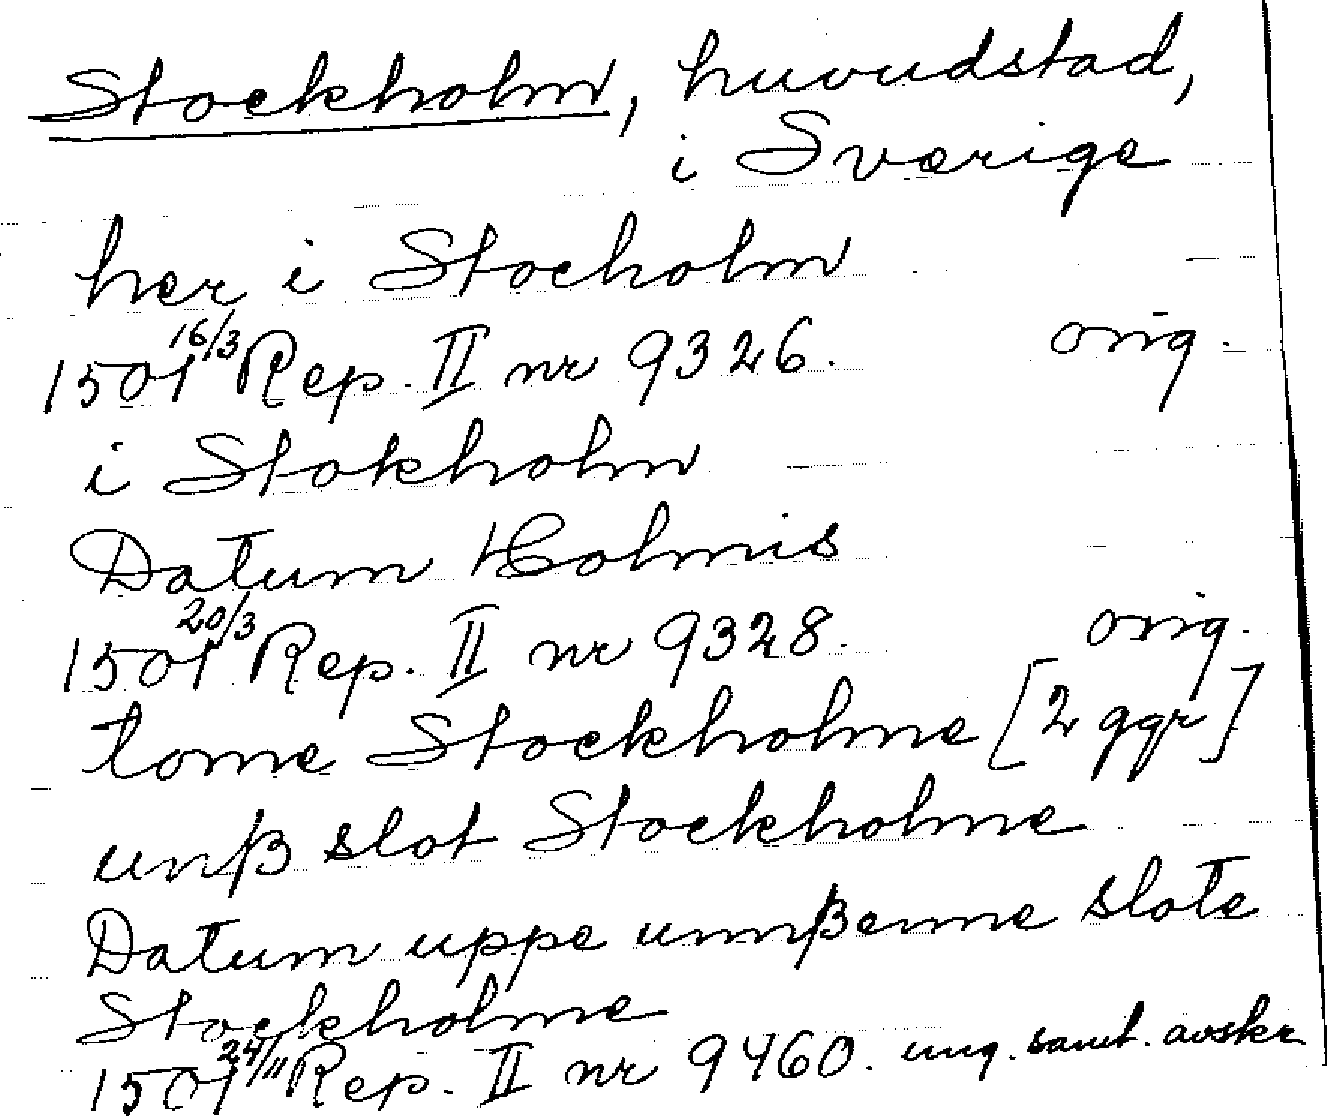 Stockholm, huvudstad,
i Sverige
her i Stocholm
1501 16/3 Rep. II nr 9326. orig.
i Stokholm
Datum Holmis
1501 20/3 Rep. II nr 9328. orig.
tome Stockholme [2 ggr]
unß slot Stockholme
Datum uppe unnßenne slote
Stockholme
1501 24/11 Rep. II nr 9460. ung. samt. avskr